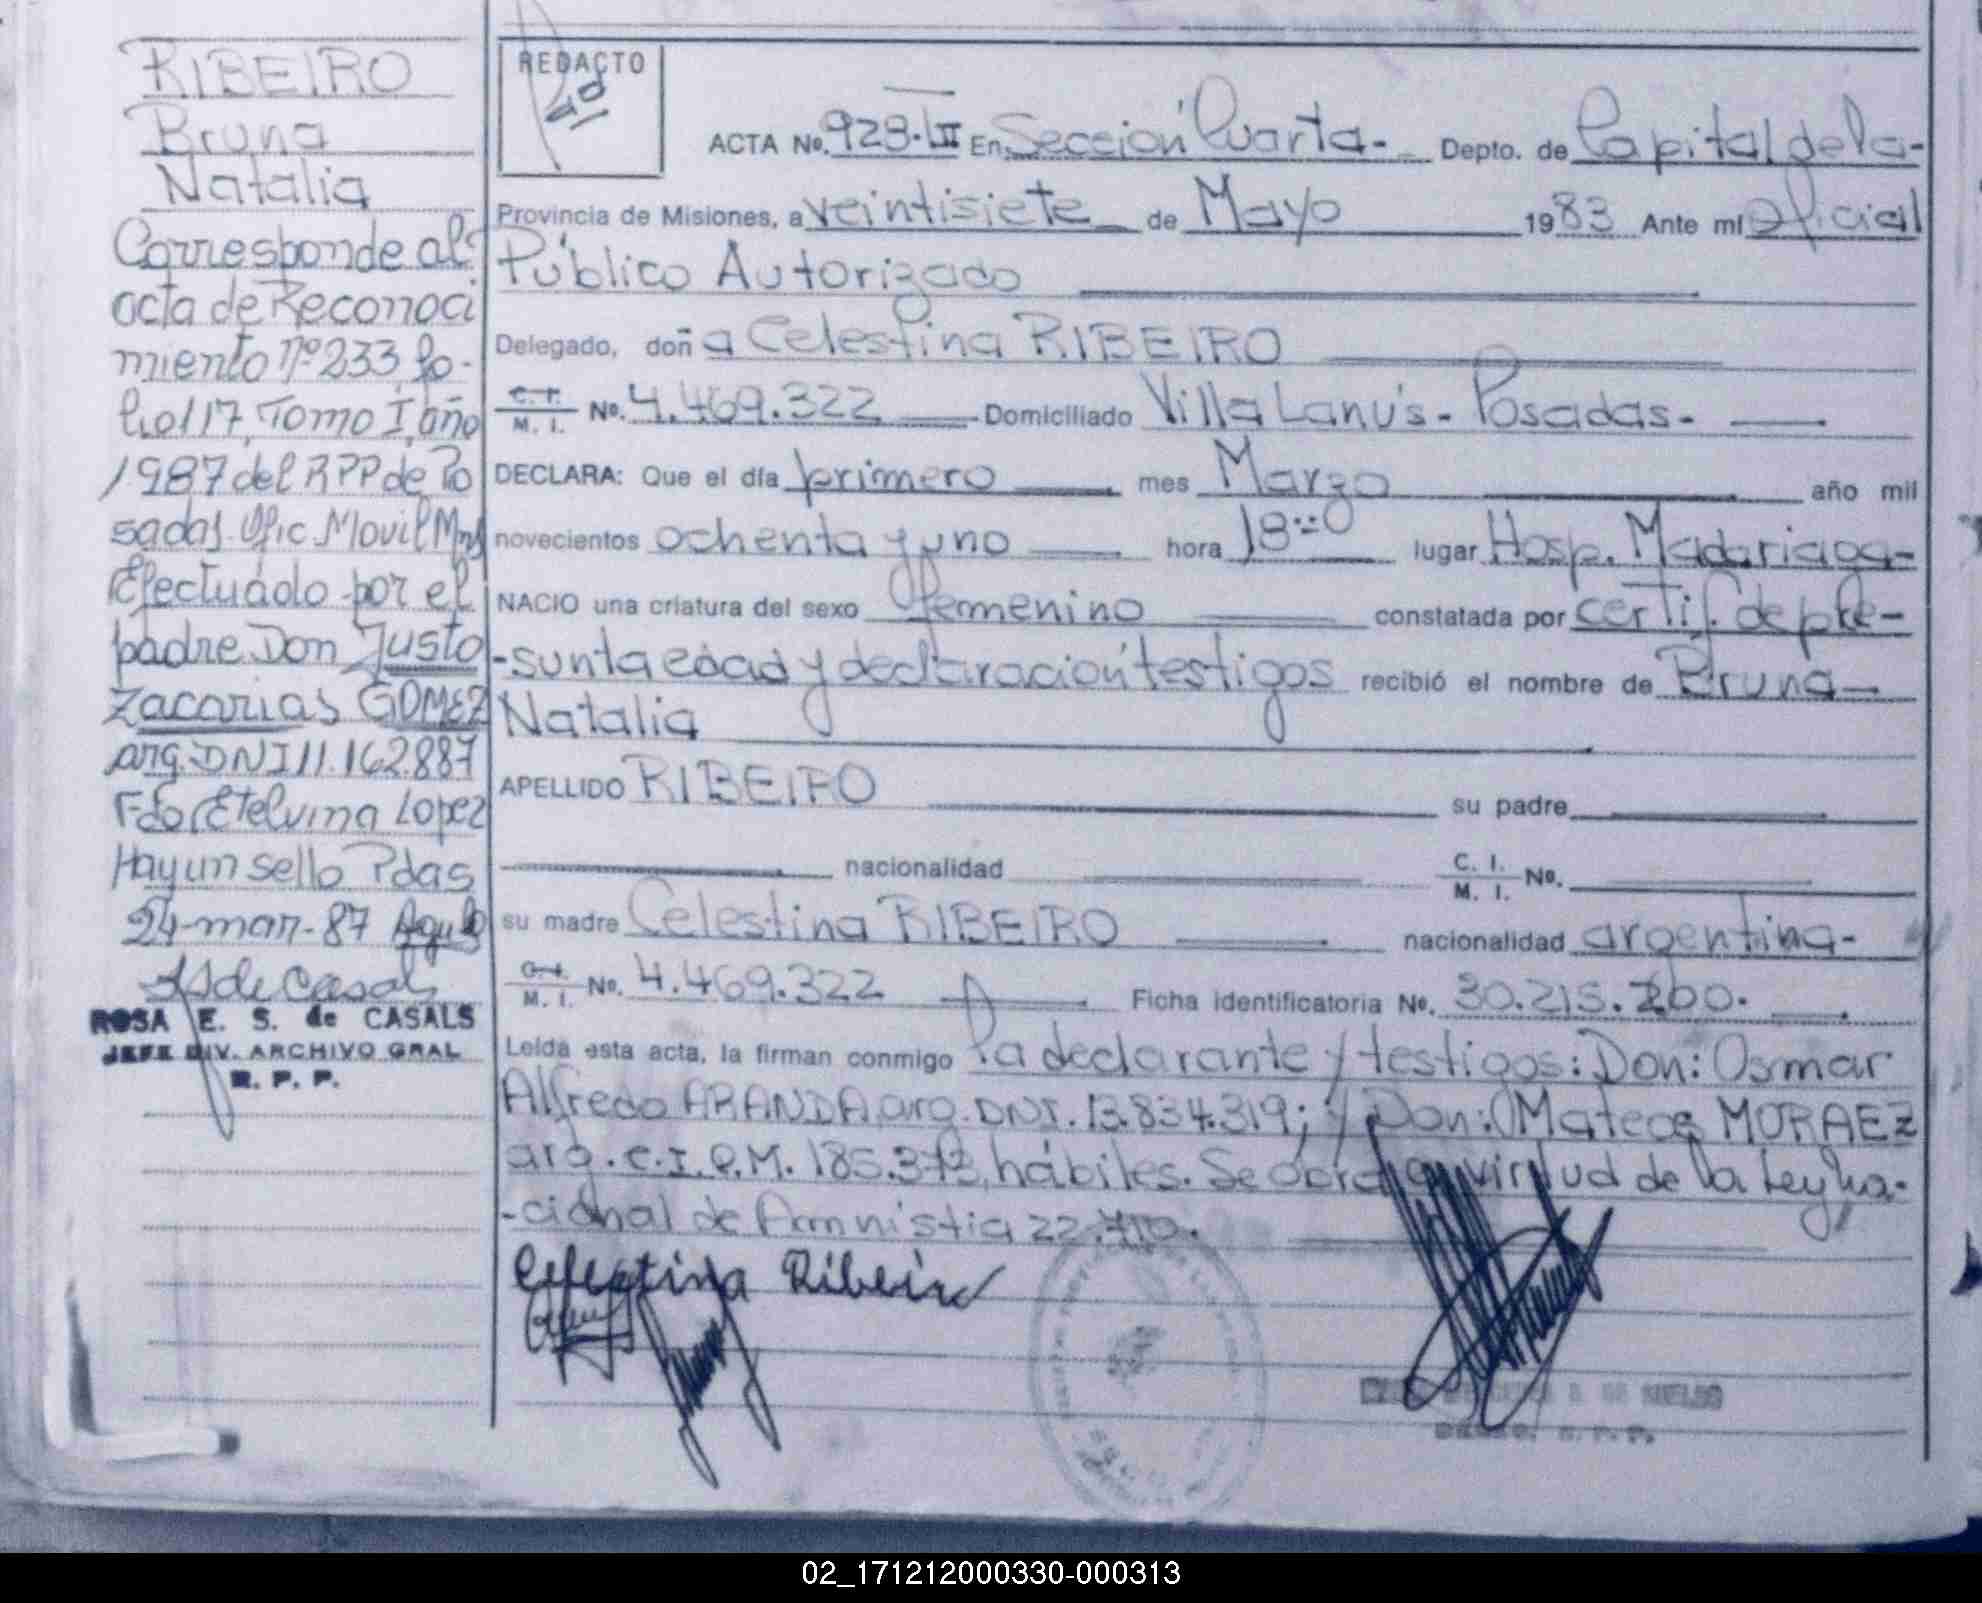 RIBEIRO
Bruna
Natalia
Corresponde al
acta de Reconoci
miento Nº 233, fo-
lio 117, Tomo I, año
1987 del RPP de Po
sadas. Ofic Movil Mns
Efectuado por el
padre Don Justo
Zacarias GOMEZ
arg. DNI 11.162.887
Fdo Etelvina Lopez
Hay un sello Pdas
24-mar-87
S de Casals
ROSA E. S. de CASALS
JEFE DIV. ARCHIVO GRAL
R. P. P.
REDACTO
ACTA No. 928-III En Sección Cuarta- Depto. de Capital de la-
Provincia de Misiones, a veintisiete de Mayo 1983 Ante mí Oficial
Público Autorizado
Delegado, doña Celestina RIBEIRO
C. I. M. I. No. 4.469.322 Domiciliado Villa Lanús - Posadas-
DECLARA: Que el día primero mes Marzo año mil
novecientos ochenta y uno hora 18:00 lugar Hosp. Madariaga-
NACIO una criatura del sexo femenino constatada por certif. de pre-
-sunta edad y declaración testigos recibió el nombre de Bruna
Natalia
APELLIDO RIBEIRO su padre
nacionalidad C. I. M. I. No.
su madre Celestina RIBEIRO nacionalidad argentina-
C. I. M. I. No. 4.469.322 Ficha identificatoria No. 30.215.260.
Leída esta acta, la firman conmigo la declarante y testigos: Don: Osmar
Alfredo ARANDA arg. DNI. 13.834.319; y Don: Mateos MORAEZ
arg. C.I.P.M. 185.372, hábiles. Se labra en virtud de la Ley Na-
-cional de Amnistia 22.410.
Celestina Ribeiro
02_171212000330-000313